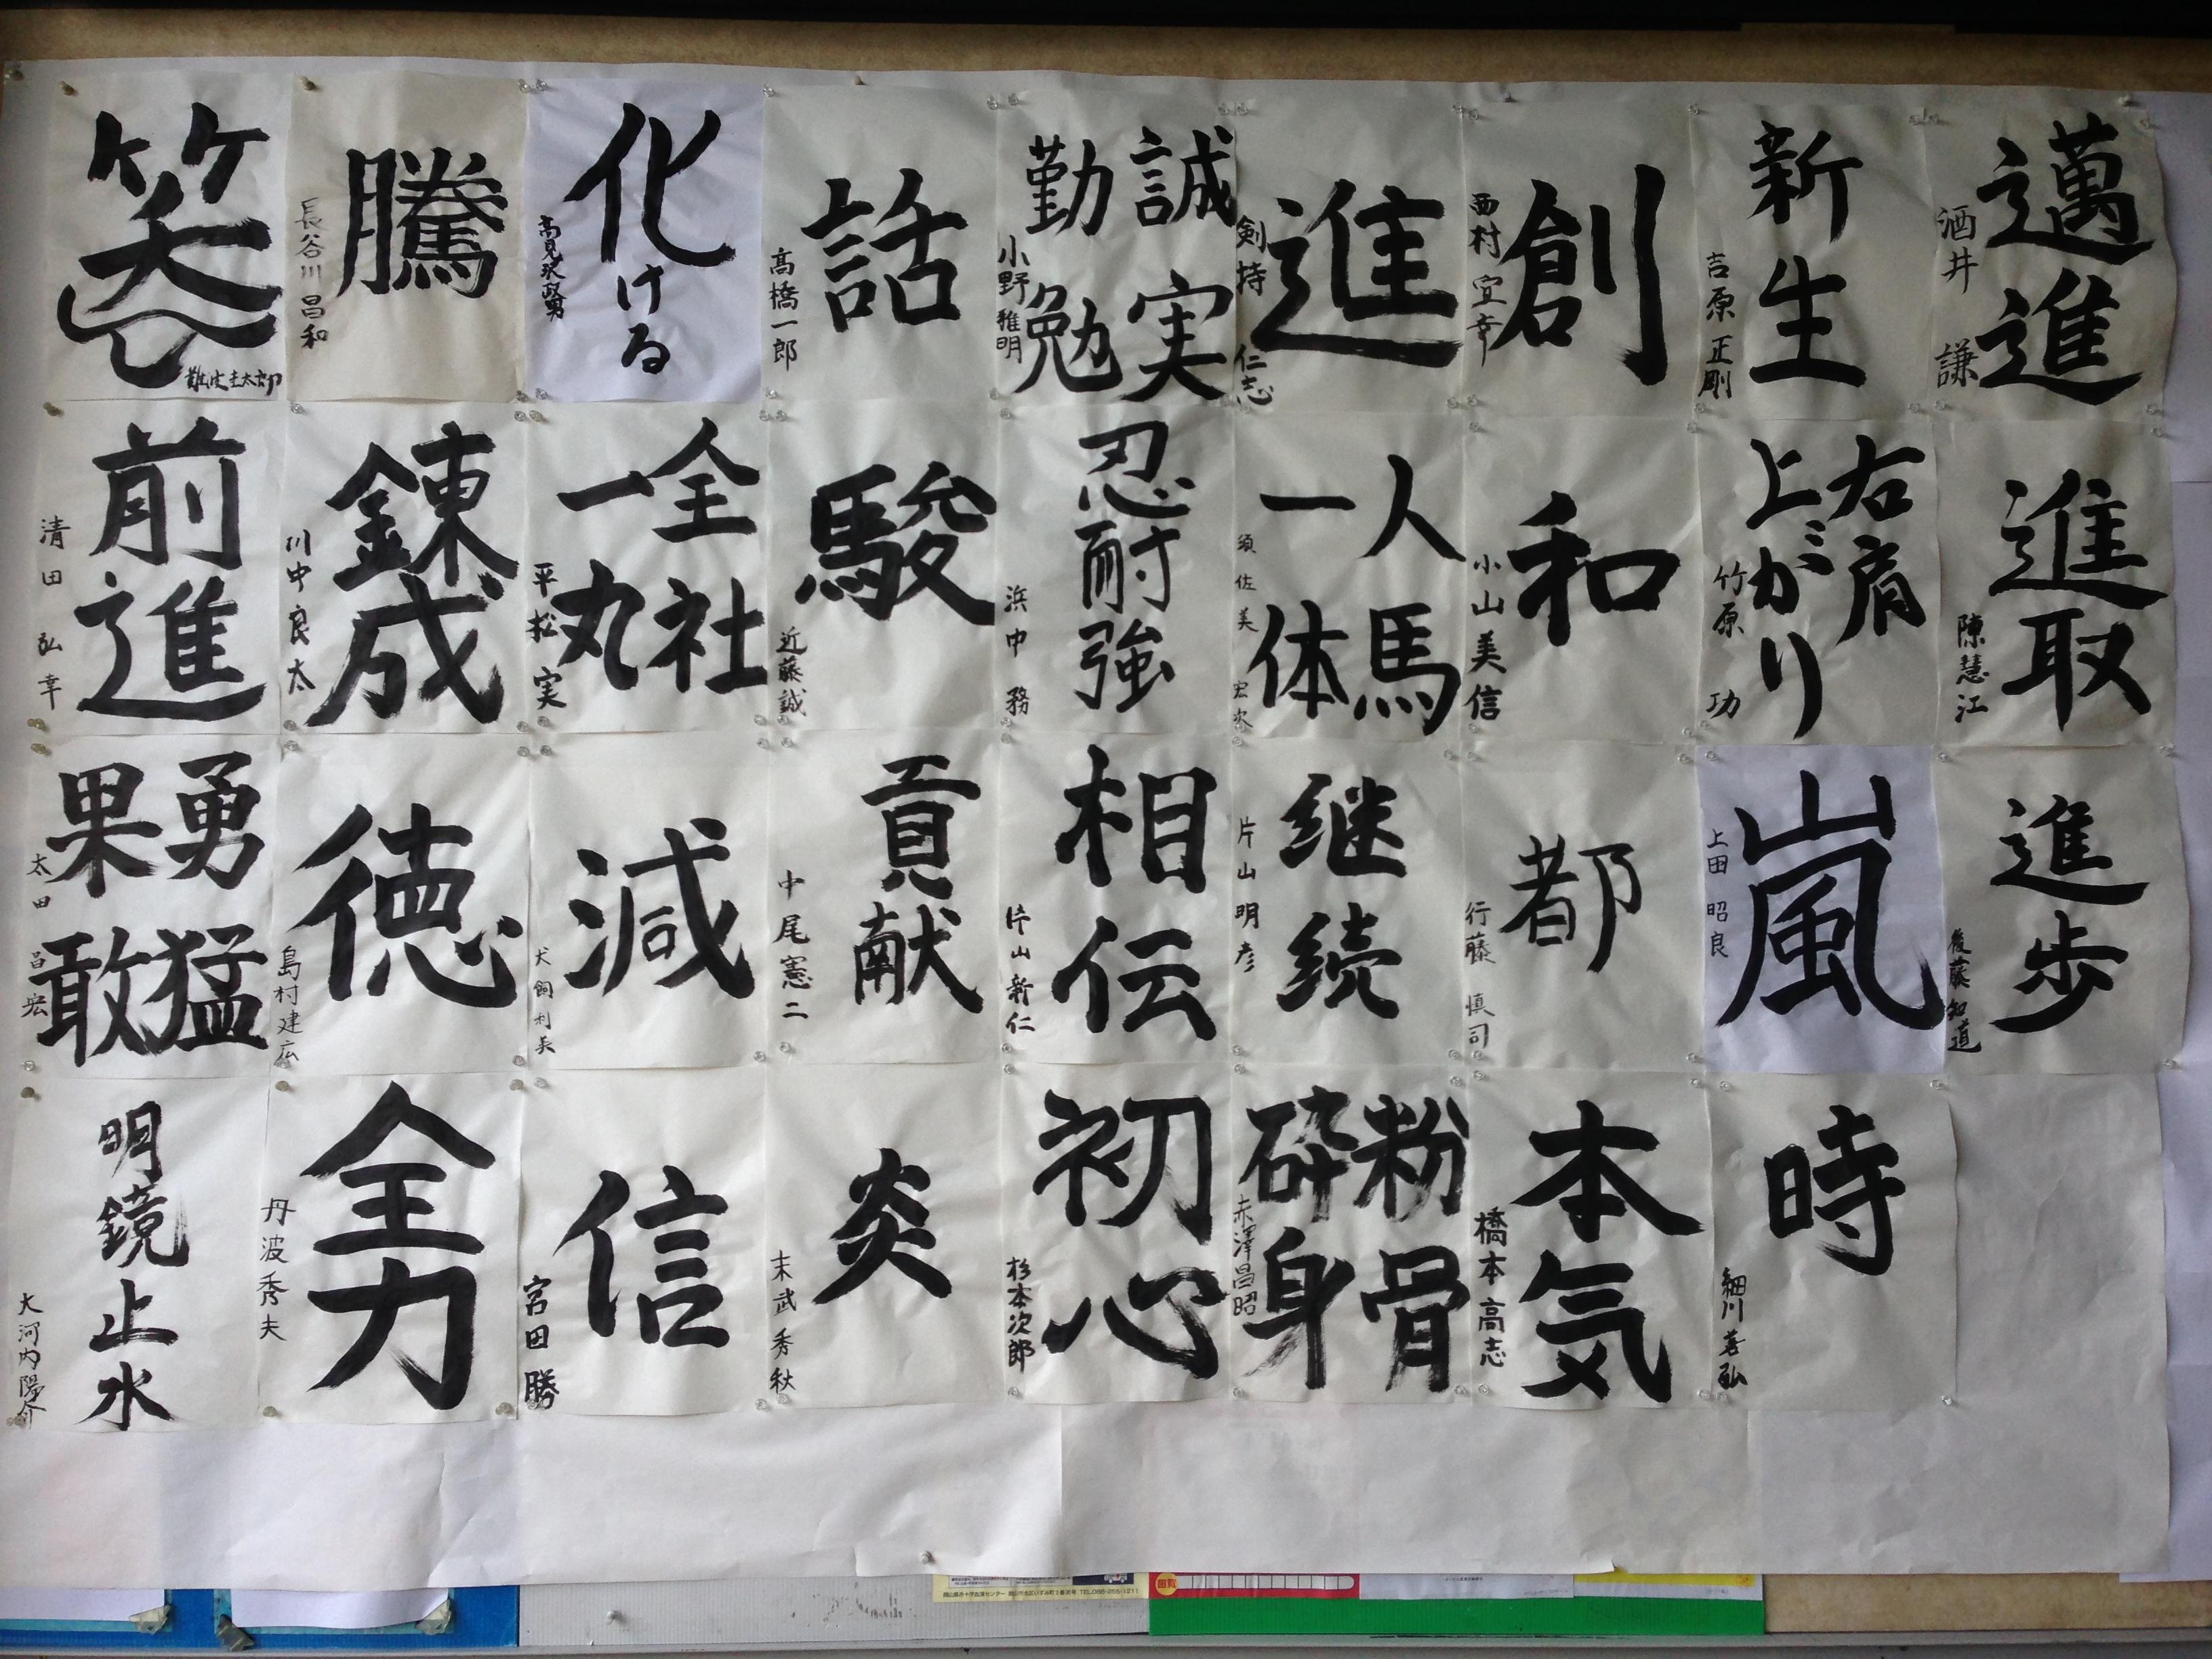 邁進
酒井 謙
新生
吉原 正剛
創
西村 宜幸
進
剣持 仁志
誠実
勤勉
小野 雅明
話
高橋一郎
化ける
騰
長谷川昌和
笑
進取
陳慧江
右肩
上がり
竹原 功
和
小山美信
人馬
一体
須佐美
忍耐強
浜中 務
駿
近藤誠
全社
一丸
平松 実
錬成
川中良太
前進
清田 弘幸
進歩
後藤知道
嵐
上田 昭良
都
行藤 慎司
継続
片山明彦
相伝
片山新仁
貢献
中尾憲二
減
犬飼利美
徳
島村建広
勇猛
果敢
太田 昌宏
時
細川善弘
本気
橋本高志
粉骨
砕身
赤澤昌昭
初心
杉本次郎
炎
末武秀秋
信
宮田 勝
全力
丹波秀夫
明鏡止水
大河内陽介
TEL.086-255-1211